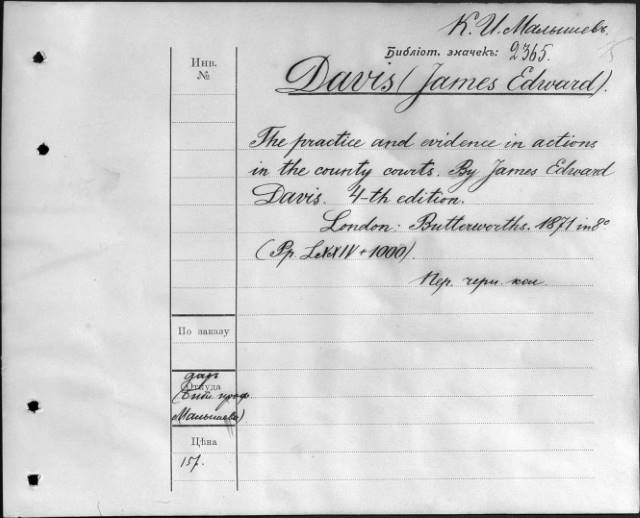 К. И. Малышевъ.
Библіот. значекъ: 2365.
Davis (James Edward).
Инв.
№
The practice and evidence in actions
in the county courts. By James Edward
Davis. 4-th edition.
London: Butterworths. 1871 in 8°
(Pp. LXXIV + 1000).
Пер. черн. кол.
По заказу
даръ
Откуда
(библ. проф.
Малышева)
Цѣна